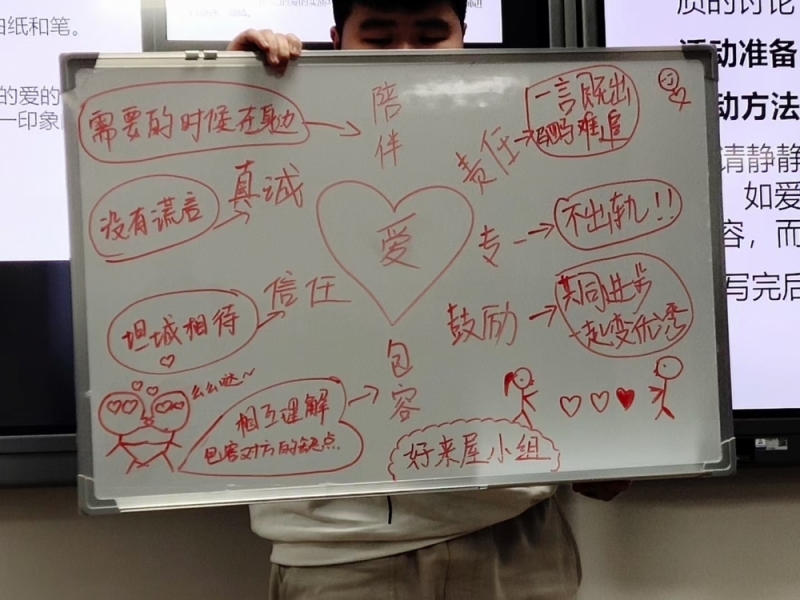 由纸和笔。
的爱的
一印象
质的讨论
活动准备
动方法
请静静
如爱
容，而
写完后
需要的时候在身边
陪伴
责任
一言既出
驷马难追
没有谎言
真诚
爱
专一
不出轨！！
坦诚相待
信任
鼓励
共同进步
一起变优秀
么么哒~
相互理解
包容对方的缺点
包容
好来屋小组